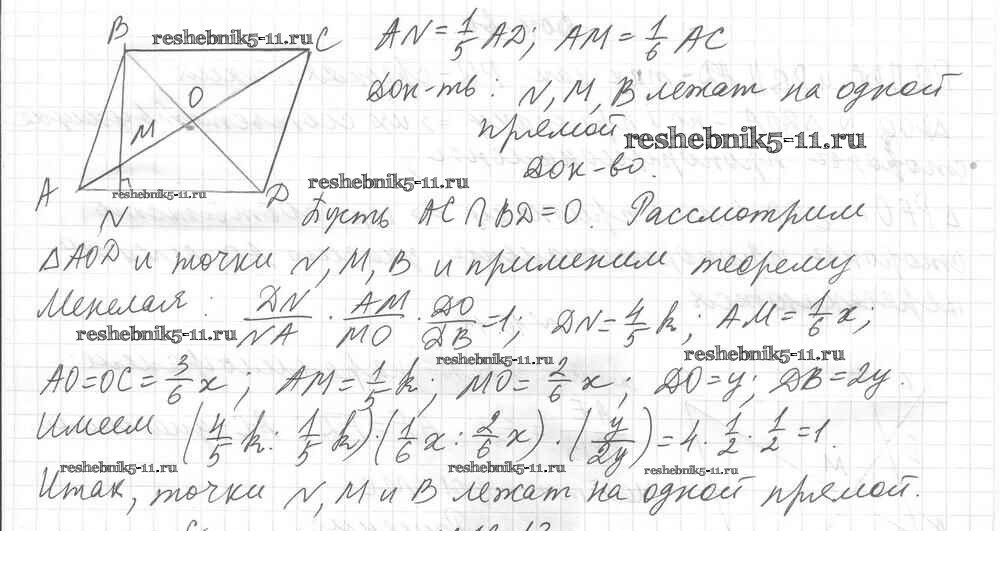 B reshebnik5-11.ru C AN = 1/5 AD; AM = 1/6 AC
O Док-ть: N, M, B лежат на одной
M прямой reshebnik5-11.ru
Док-во.
A reshebnik5-11.ru D reshebnik5-11.ru
N Пусть AC ∩ BD = O. Рассмотрим
△AOD и точки N, M, B и применим теорему
Менелая: DN/NA · AM/MO · DO/DB = 1; DN = 4/5 k; AM = 1/6 x;
reshebnik5-11.ru reshebnik5-11.ru reshebnik5-11.ru
AO = OC = 3/6 x; AM = 1/5 k; MO = 2/6 x; DO = y; DB = 2y.
Имеем (4/5 k : 1/5 k) · (1/6 x : 2/6 x) · (y/2y) = 4 · 1/2 · 1/2 = 1.
reshebnik5-11.ru reshebnik5-11.ru reshebnik5-11.ru
Итак, точки N, M и B лежат на одной прямой.